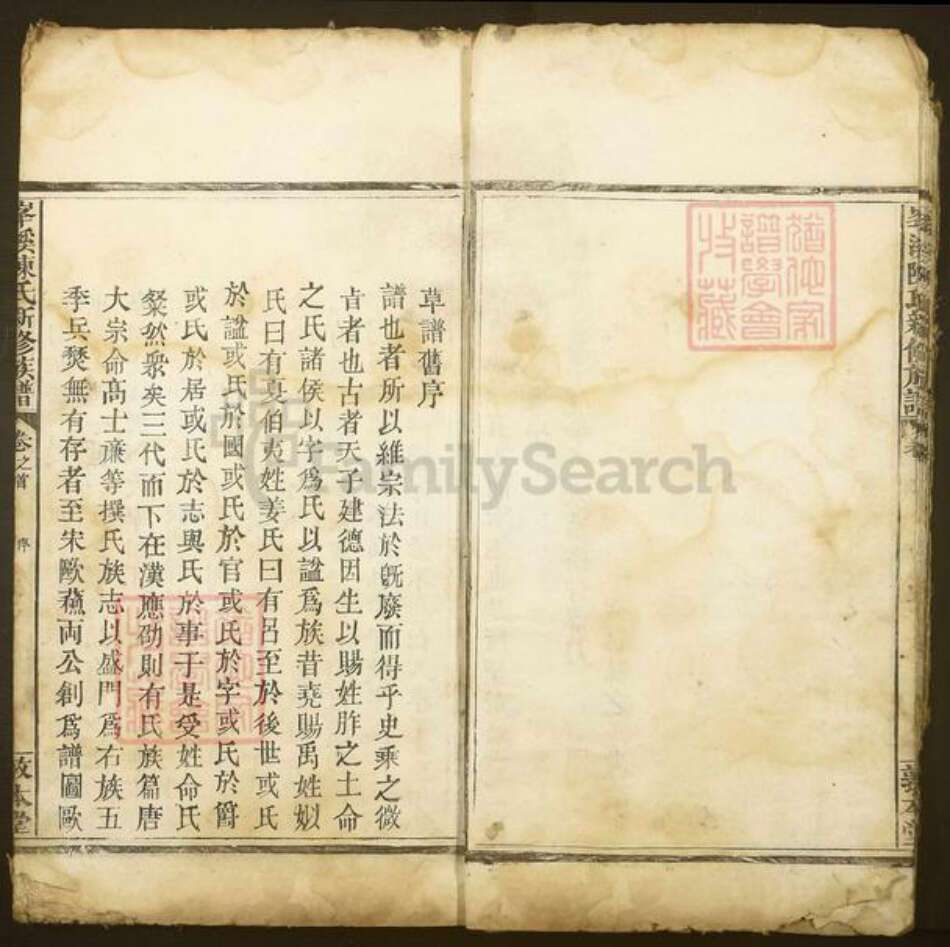 陳氏新修族譜
草譜舊序
譜也者所以維宗法於旣廢而得乎史乘之微
者也古者天子建德因生以賜姓胙之土命
之氏諸侯以字爲氏以諡爲族昔堯賜禹姓姒
氏曰有夏伯夷姓姜氏曰有呂至於後世或氏
於諡或氏於國或氏於官或氏於字或氏於爵
或氏於居或氏於志與氏於事于是受姓命氏
粲然衆矣三代而下在漢應劭則有氏族篇唐
大宗命髙士亷等撰氏族志以盛門爲右族五
季兵燹無有存者至宋歐蘓両公創爲譜圖歐
溪陳氏新修族譜 卷之首 序 敦本堂
家譜學會收藏
FamilySearch